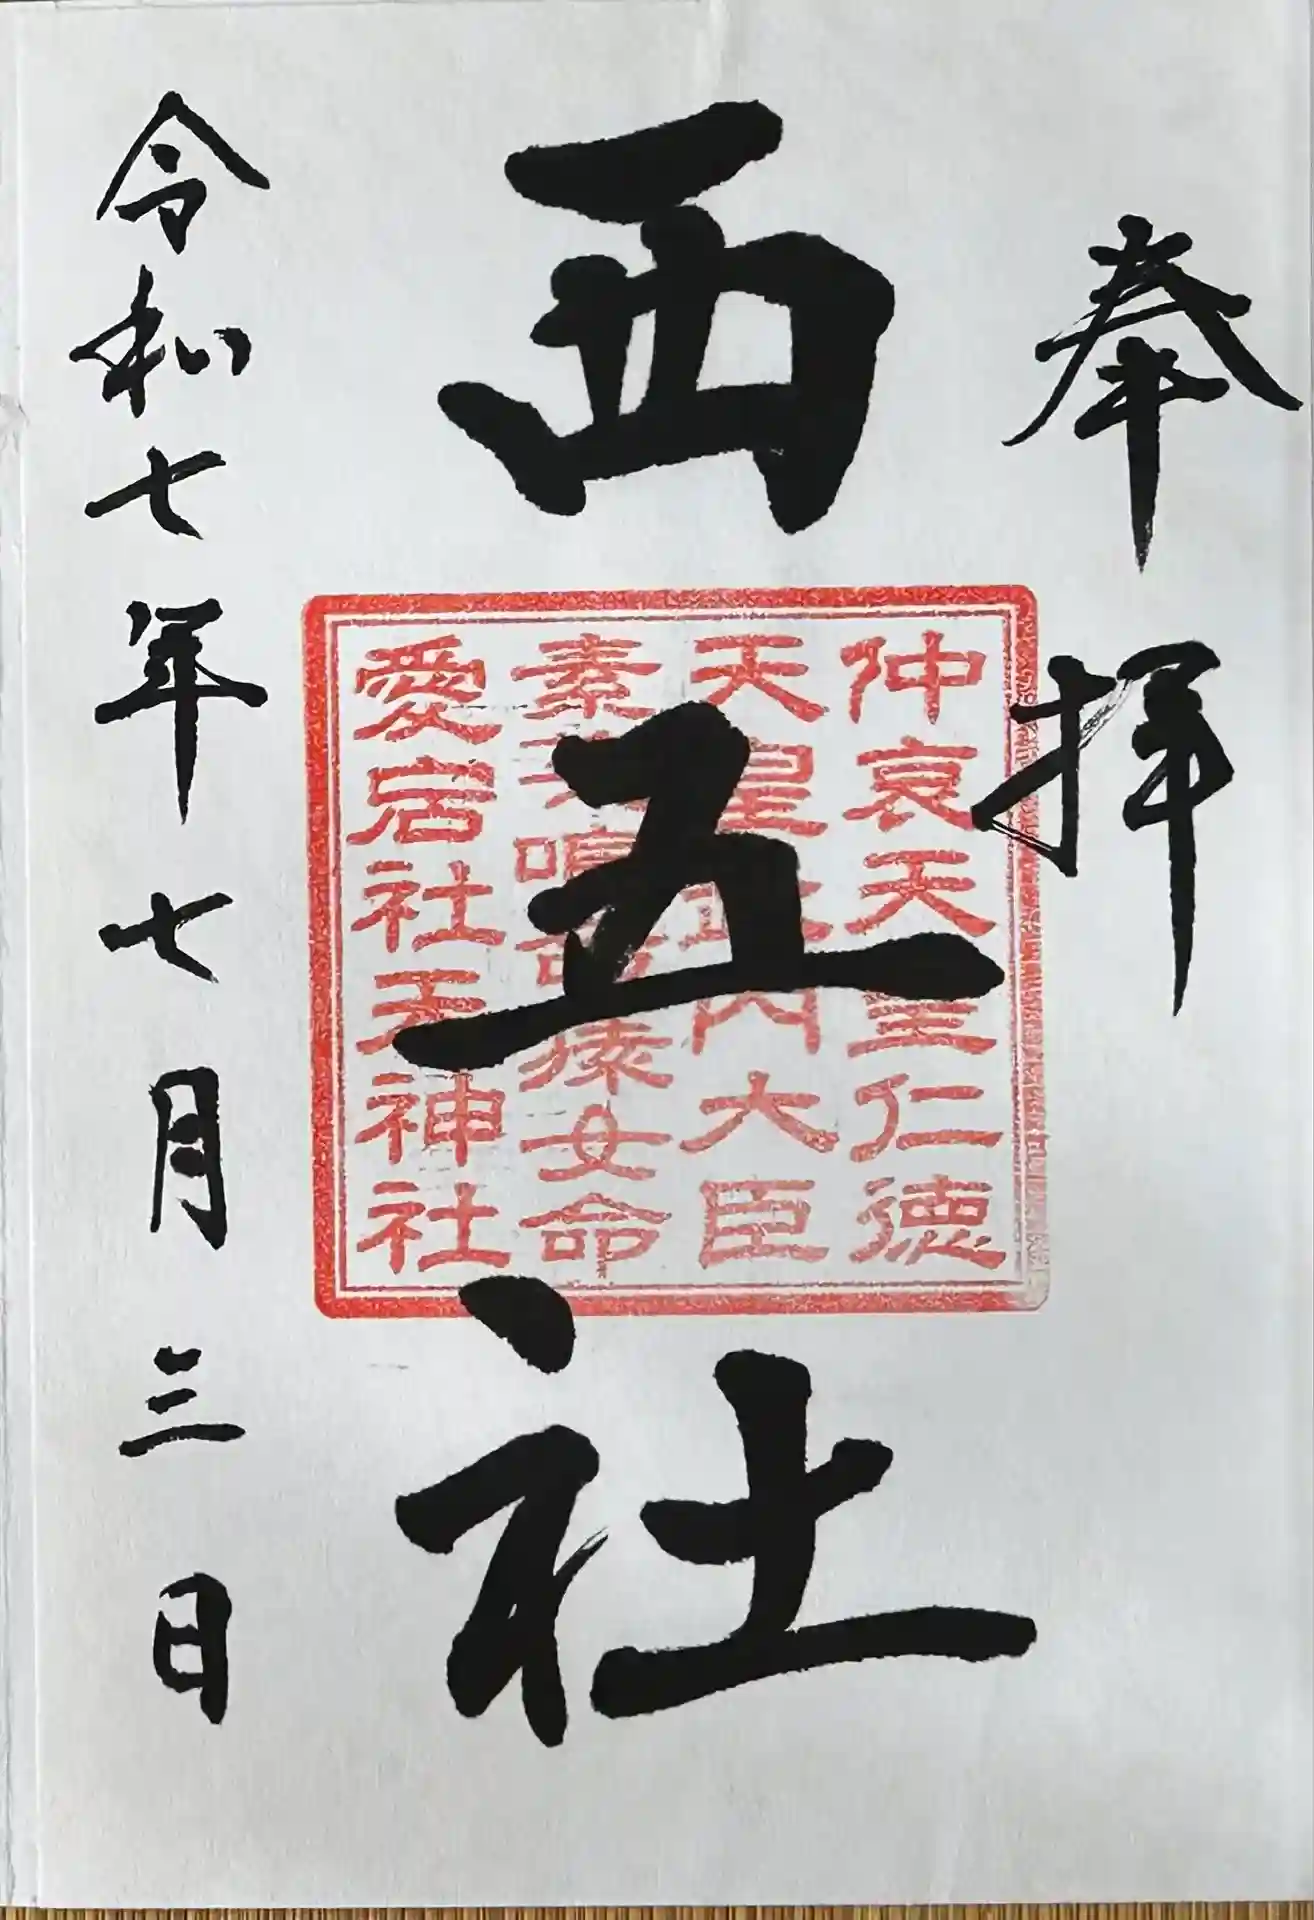 奉拝
西五社
仲哀天皇仁徳
天皇武内大臣
素戔嗚尊猿女命
愛宕社天神社
令和七年七月三日